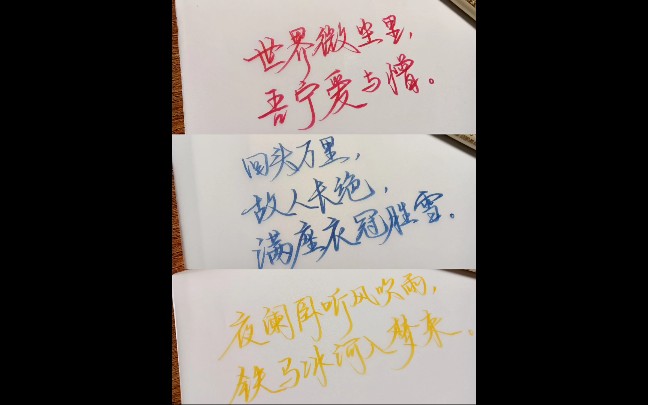 世界微尘里,
吾宁爱与憎。
回头万里,
故人长绝,
满座衣冠胜雪。
夜阑卧听风吹雨,
铁马冰河入梦来。